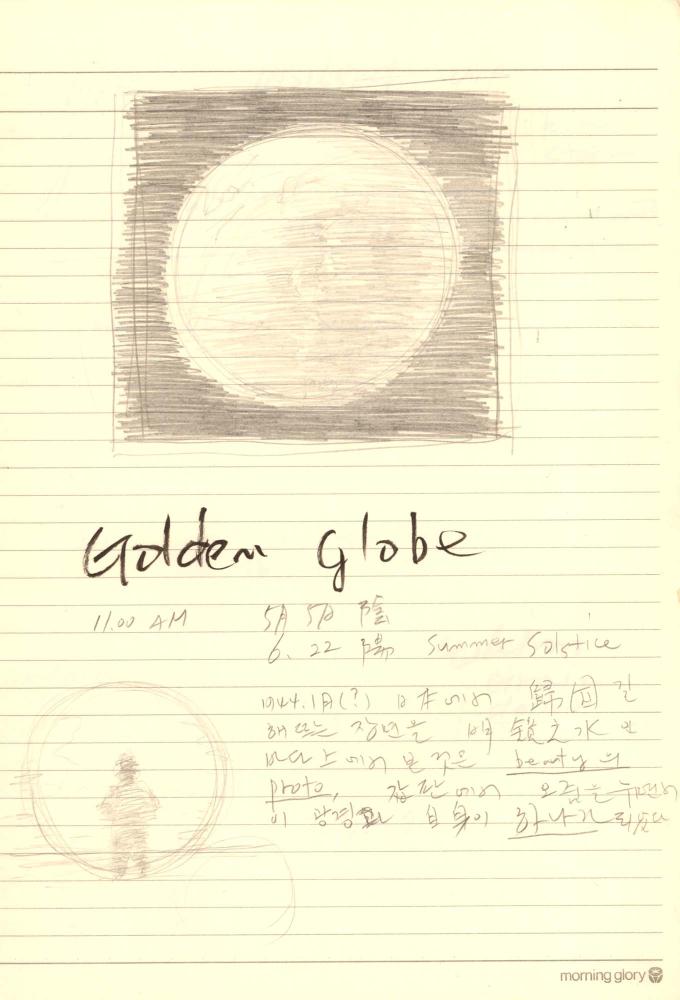 Golden globe
11.00 AM 5月 5日 陰
6. 22 陽 Summer Solstice
1944.1月(?) 日本에서 歸國 길
해뜨는 장면을 明鏡之水 의
바다 上에서 본 것은 beauty 의
proto, 갑판에서 오줌을 누면서
이 광경과 自身이 하나가 되었다
morning glory